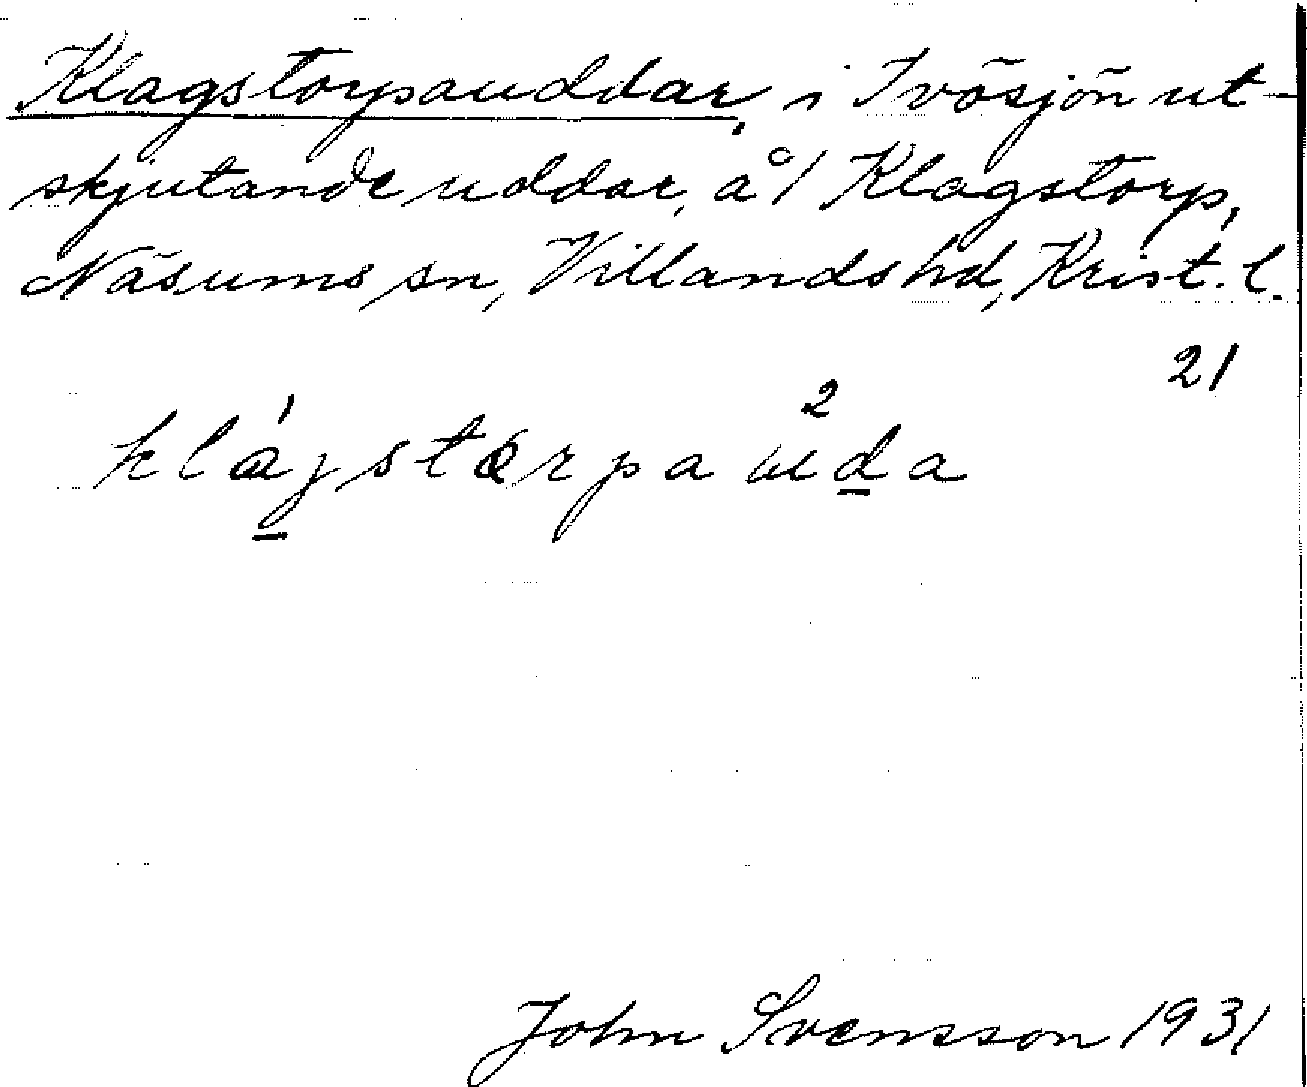 Klagstorpauddar, i Ivösjön ut-
skjutande uddar, å 1 Klagstorp,
Näsums sn, Villands hd, Krist. l.
21
klágstơrpa ud̲a
John Svensson 1931